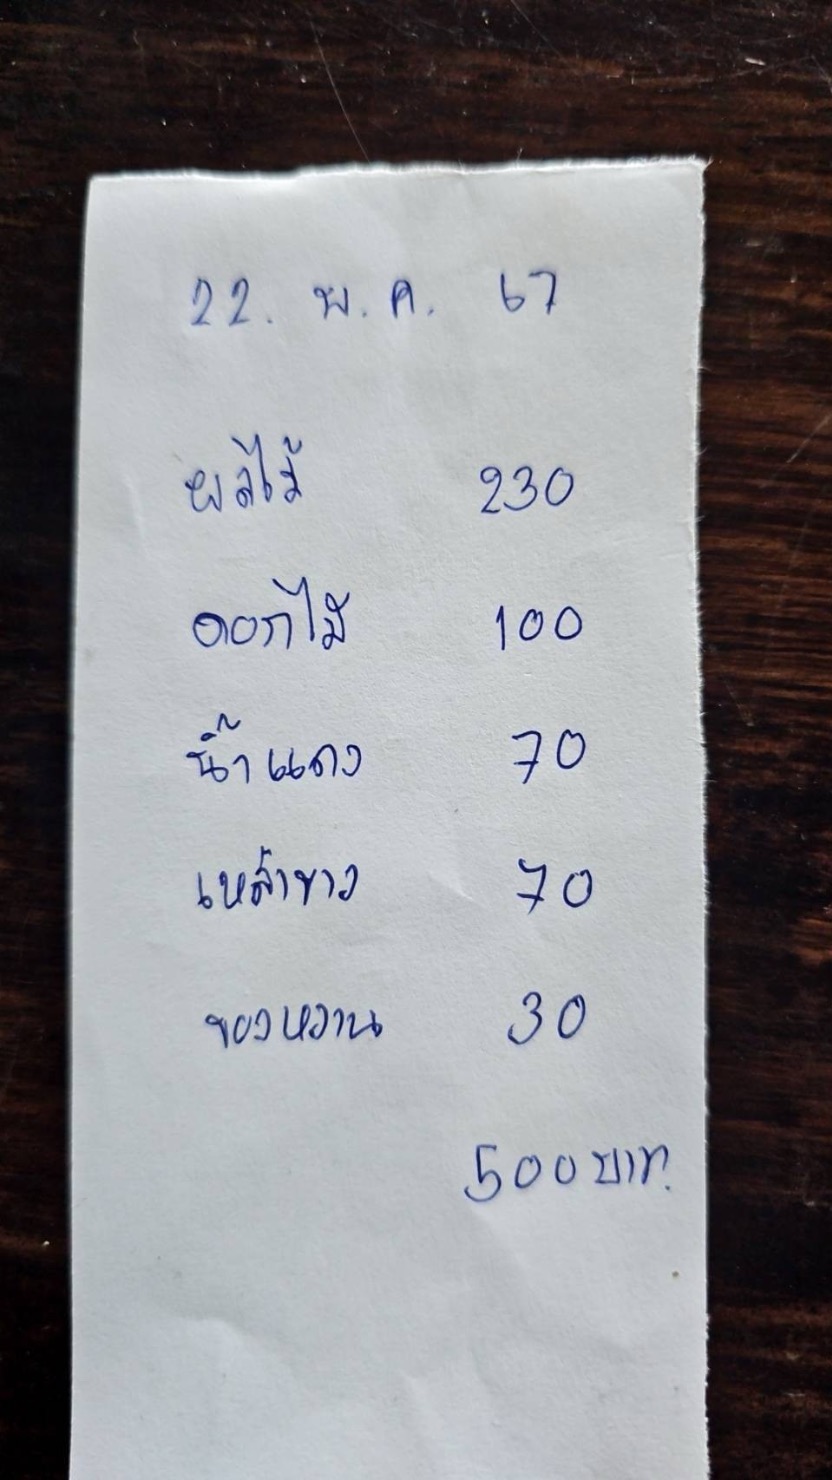 22. พ.ค. 67
ผลไม้ 230
ดอกไม้ 100
น้ำแดง 70
เหล้าขาว 70
ของหวาน 30
500 บาท.